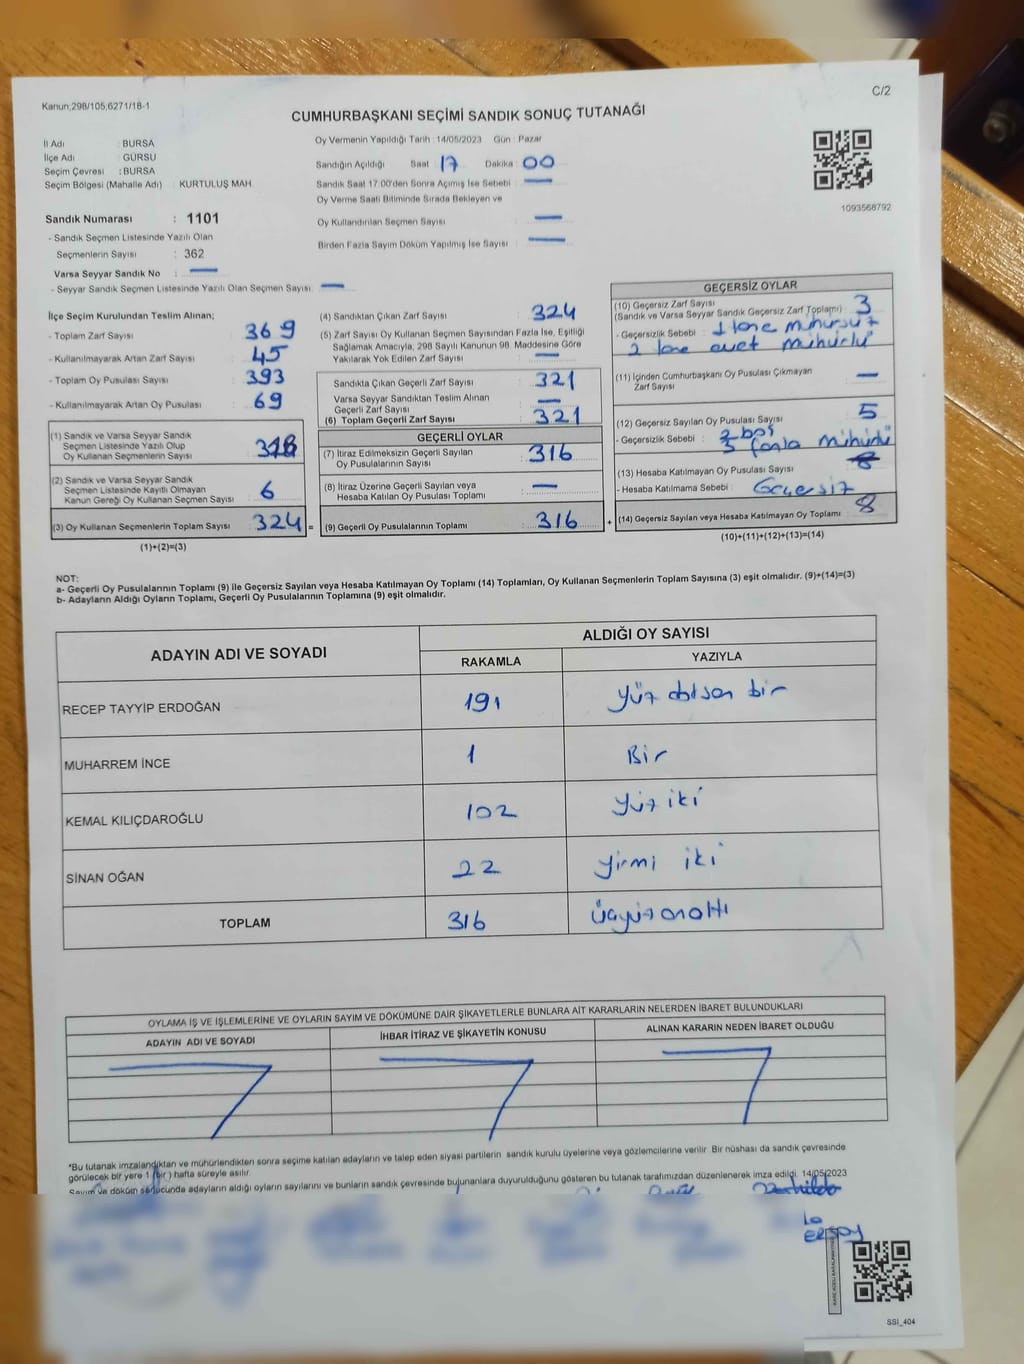 Kanun;298/105,6271/18-1
C/2
CUMHURBAŞKANI SEÇİMİ SANDIK SONUÇ TUTANAĞI
İl Adı : BURSA
İlçe Adı : GÜRSU
Seçim Çevresi : BURSA
Seçim Bölgesi (Mahalle Adı) : KURTULUŞ MAH.
Sandık Numarası : 1101
- Sandık Seçmen Listesinde Yazılı Olan
Seçmenlerin Sayısı : 362
Varsa Seyyar Sandık No : —
- Seyyar Sandık Seçmen Listesinde Yazılı Olan Seçmen Sayısı : —
Oy Vermenin Yapıldığı Tarih : 14/05/2023 Gün : Pazar
Sandığın Açıldığı Saat 17 Dakika 00
Sandık Saat 17:00'den Sonra Açımış İse Sebebi : —
Oy Verme Saati Bitiminde Sırada Bekleyen ve
Oy Kullandırılan Seçmen Sayısı : —
Birden Fazla Sayım Döküm Yapılmış İse Sayısı : —
1093568792
İlçe Seçim Kurulundan Teslim Alınan;
- Toplam Zarf Sayısı : 369
- Kullanılmayarak Artan Zarf Sayısı : 45
- Toplam Oy Pusulası Sayısı : 393
- Kullanılmayarak Artan Oy Pusulası : 69
(1) Sandık ve Varsa Seyyar Sandık
Seçmen Listesinde Yazılı Olup
Oy Kullanan Seçmenlerin Sayısı : 318
(2) Sandık ve Varsa Seyyar Sandık
Seçmen Listesinde Kayıtlı Olmayan
Kanun Gereği Oy Kullanan Seçmen Sayısı : 6
(3) Oy Kullanan Seçmenlerin Toplam Sayısı : 324 =
(1)+(2)=(3)
(4) Sandıktan Çıkan Zarf Sayısı : 324
(5) Zarf Sayısı Oy Kullanan Seçmen Sayısından Fazla İse, Eşitliği
Sağlamak Amacıyla, 298 Sayılı Kanunun 98. Maddesine Göre
Yakılarak Yok Edilen Zarf Sayısı : —
Sandıkta Çıkan Geçerli Zarf Sayısı : 321
Varsa Seyyar Sandıktan Teslim Alınan
Geçerli Zarf Sayısı : —
(6) Toplam Geçerli Zarf Sayısı : 321
GEÇERLİ OYLAR
(7) İtiraz Edilmeksizin Geçerli Sayılan
Oy Pusulalarının Sayısı : 316
(8) İtiraz Üzerine Geçerli Sayılan veya
Hesaba Katılan Oy Pusulası Toplamı : —
(9) Geçerli Oy Pusulalarının Toplamı : 316 +
GEÇERSİZ OYLAR
(10) Geçersiz Zarf Sayısı
(Sandık ve Varsa Seyyar Sandık Geçersiz Zarf Toplamı) : 3
- Geçersizlik Sebebi : 1 tane mühürsüz
2 tane evet mühürlü
(11) İçinden Cumhurbaşkanı Oy Pusulası Çıkmayan
Zarf Sayısı : —
(12) Geçersiz Sayılan Oy Pusulası Sayısı : 5
- Geçersizlik Sebebi : 2 boş
3 fazla mühürlü
(13) Hesaba Katılmayan Oy Pusulası Sayısı :
- Hesaba Katılmama Sebebi : Geçersiz
(14) Geçersiz Sayılan veya Hesaba Katılmayan Oy Toplamı : 8
(10)+(11)+(12)+(13)=(14)
NOT:
a- Geçerli Oy Pusulalarının Toplamı (9) ile Geçersiz Sayılan veya Hesaba Katılmayan Oy Toplamı (14) Toplamları, Oy Kullanan Seçmenlerin Toplam Sayısına (3) eşit olmalıdır. (9)+(14)=(3)
b- Adayların Aldığı Oyların Toplamı, Geçerli Oy Pusulalarının Toplamına (9) eşit olmalıdır.
ADAYIN ADI VE SOYADI
ALDIĞI OY SAYISI
RAKAMLA YAZIYLA
RECEP TAYYİP ERDOĞAN 191 yüz doksan bir
MUHARREM İNCE 1 Bir
KEMAL KILIÇDAROĞLU 102 yüz iki
SİNAN OĞAN 22 yirmi iki
TOPLAM 316 üçyüz onaltı
OYLAMA İŞ VE İŞLEMLERİNE VE OYLARIN SAYIM VE DÖKÜMÜNE DAİR ŞİKAYETLERLE BUNLARA AİT KARARLARIN NELERDEN İBARET BULUNDUKLARI
ADAYIN ADI VE SOYADI İHBAR İTİRAZ VE ŞİKAYETİN KONUSU ALINAN KARARIN NEDEN İBARET OLDUĞU
*Bu tutanak imzalandıktan ve mühürlendikten sonra seçime katılan adayların ve talep eden siyasi partilerin sandık kurulu üyelerine veya gözlemcilerine verilir. Bir nüshası da sandık çevresinde
görülecek bir yere 1 (bir) hafta süreyle asılır.
Sayım ve döküm sonucunda adayların aldığı oyların sayılarını ve bunların sandık çevresinde bulunanlara duyurulduğunu gösteren bu tutanak tarafımızdan düzenlenerek imza edildi. 14/05/2023
ERSOY
SSI_404